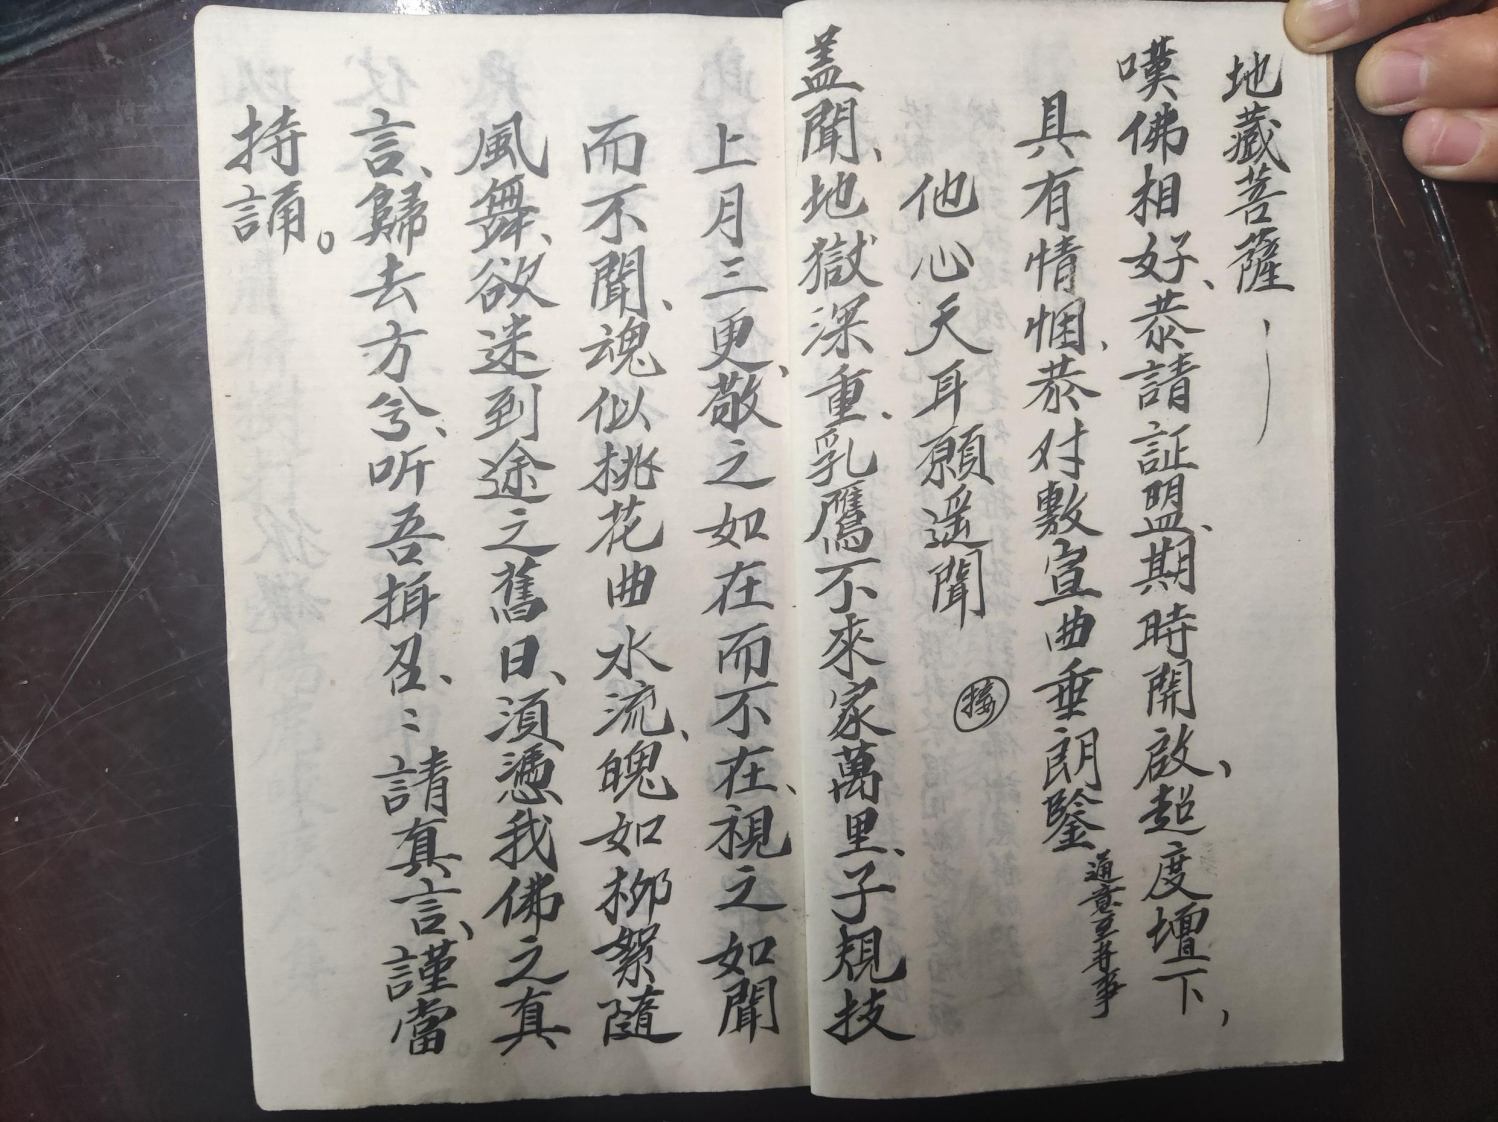 地藏菩薩
嘆佛相好、恭請証盟、期時開啟、超度壇下，
具有情悃、恭对敷宣曲垂朗鑒 通意至者事
他心天耳願遥聞 接
盖聞、地獄深重、乳鷹不來家萬里、子規技
上月三更、敬之如在而不在、視之如聞
而不聞、魂似挑花曲水流、魄如柳絮隨
風舞、欲迷到途之舊日、須憑我佛之真
言、歸去方兮、听吾揖召、〻請真言、謹當
持誦。